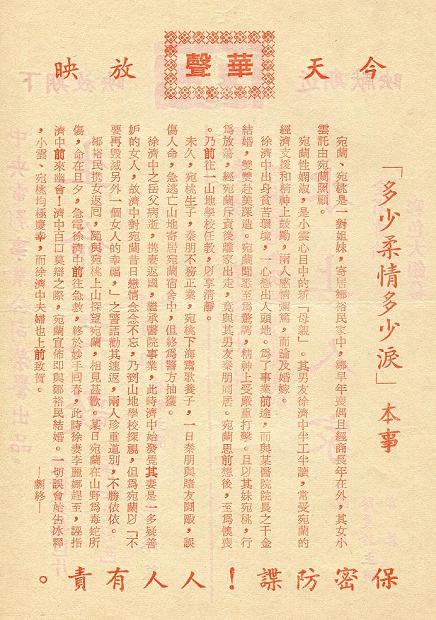 今天華聲放映
「多少柔情多少淚」本事
宛蘭、宛桃是一對姐妹,寄居鄒裕民家中,鄒早年喪偶且經商長年在外,其女小
雲託由宛蘭照顧。
宛蘭性嫻淑,是小雲心目中的新「母親」。其男友徐濟中半工半讀,常受宛蘭的
經濟支援和精神上鼓勵,兩人感情彌篤,而論及婚嫁。
徐濟中出身貧苦環境,一心想出人頭地。爲了事業前途,而與某醫院院長之千金
結婚,雙雙赴美深造。宛蘭聞悉至爲驚愕,精神上受嚴重打擊。且以其妹宛桃,行
爲放蕩,經宛蘭斥責後離家出走,竟與其男友秦朋同居。宛蘭思前想後,至爲懊喪
。乃前往一山地學校任教,以享清靜。
未久,宛桃生子,秦朋不務正業,宛桃下海鬻歌養子,一日秦朋與賭友鬪毆,誤
傷人命,急逃亡山地寄宛蘭宿舍中,但終爲警方獲。
徐濟中之岳父病逝,携妻返國,繼承醫院事業,此時濟中始發覺其妻是一多疑善
妒的女人,故濟中對宛蘭昔日戀情念念不忘,乃到山地學校探視,但爲宛蘭以「不
要再毀滅另外一個女人的幸福,」之警語勸其速返,兩人珍重道別,不勝依依。
鄒裕民携女返囘,隨與宛桃上山探望宛蘭,相見甚歡。某日宛蘭在山野爲毒蛇所
傷,命在旦夕,急電徐濟中前往急救,終於妙手囘春,此時徐妻李麗娜趕至,誣指
濟中前來幽會!濟中百口莫辯之際,宛蘭宣佈即與鄒裕民結婚。一切誤會始告冰釋
,小雲、宛桃均極慶幸,而徐濟中夫婦也上前致賀。
—劇終—
保密防諜!人人有責。